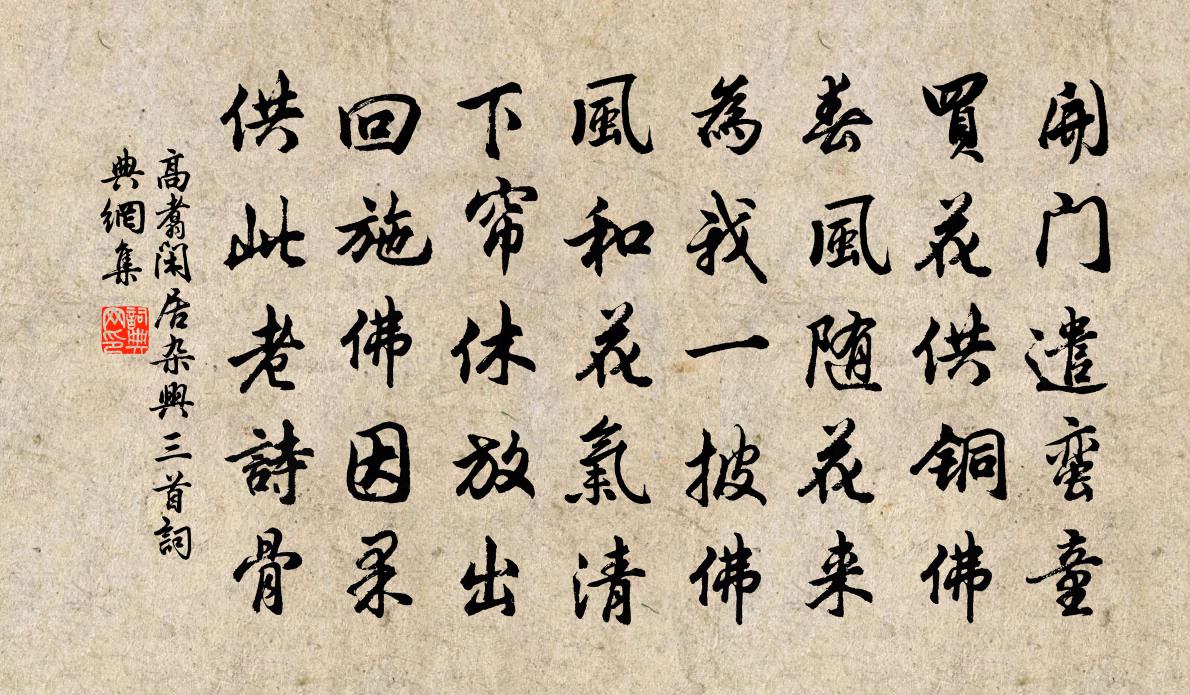 開門遣蛮童
買花供銅佛
春風随花来
為我一披佛
風和花氣清
下帘休放出
回施佛因果
供此老詩骨
高翥閑居杂興三首詞
典網集
詞典
网印